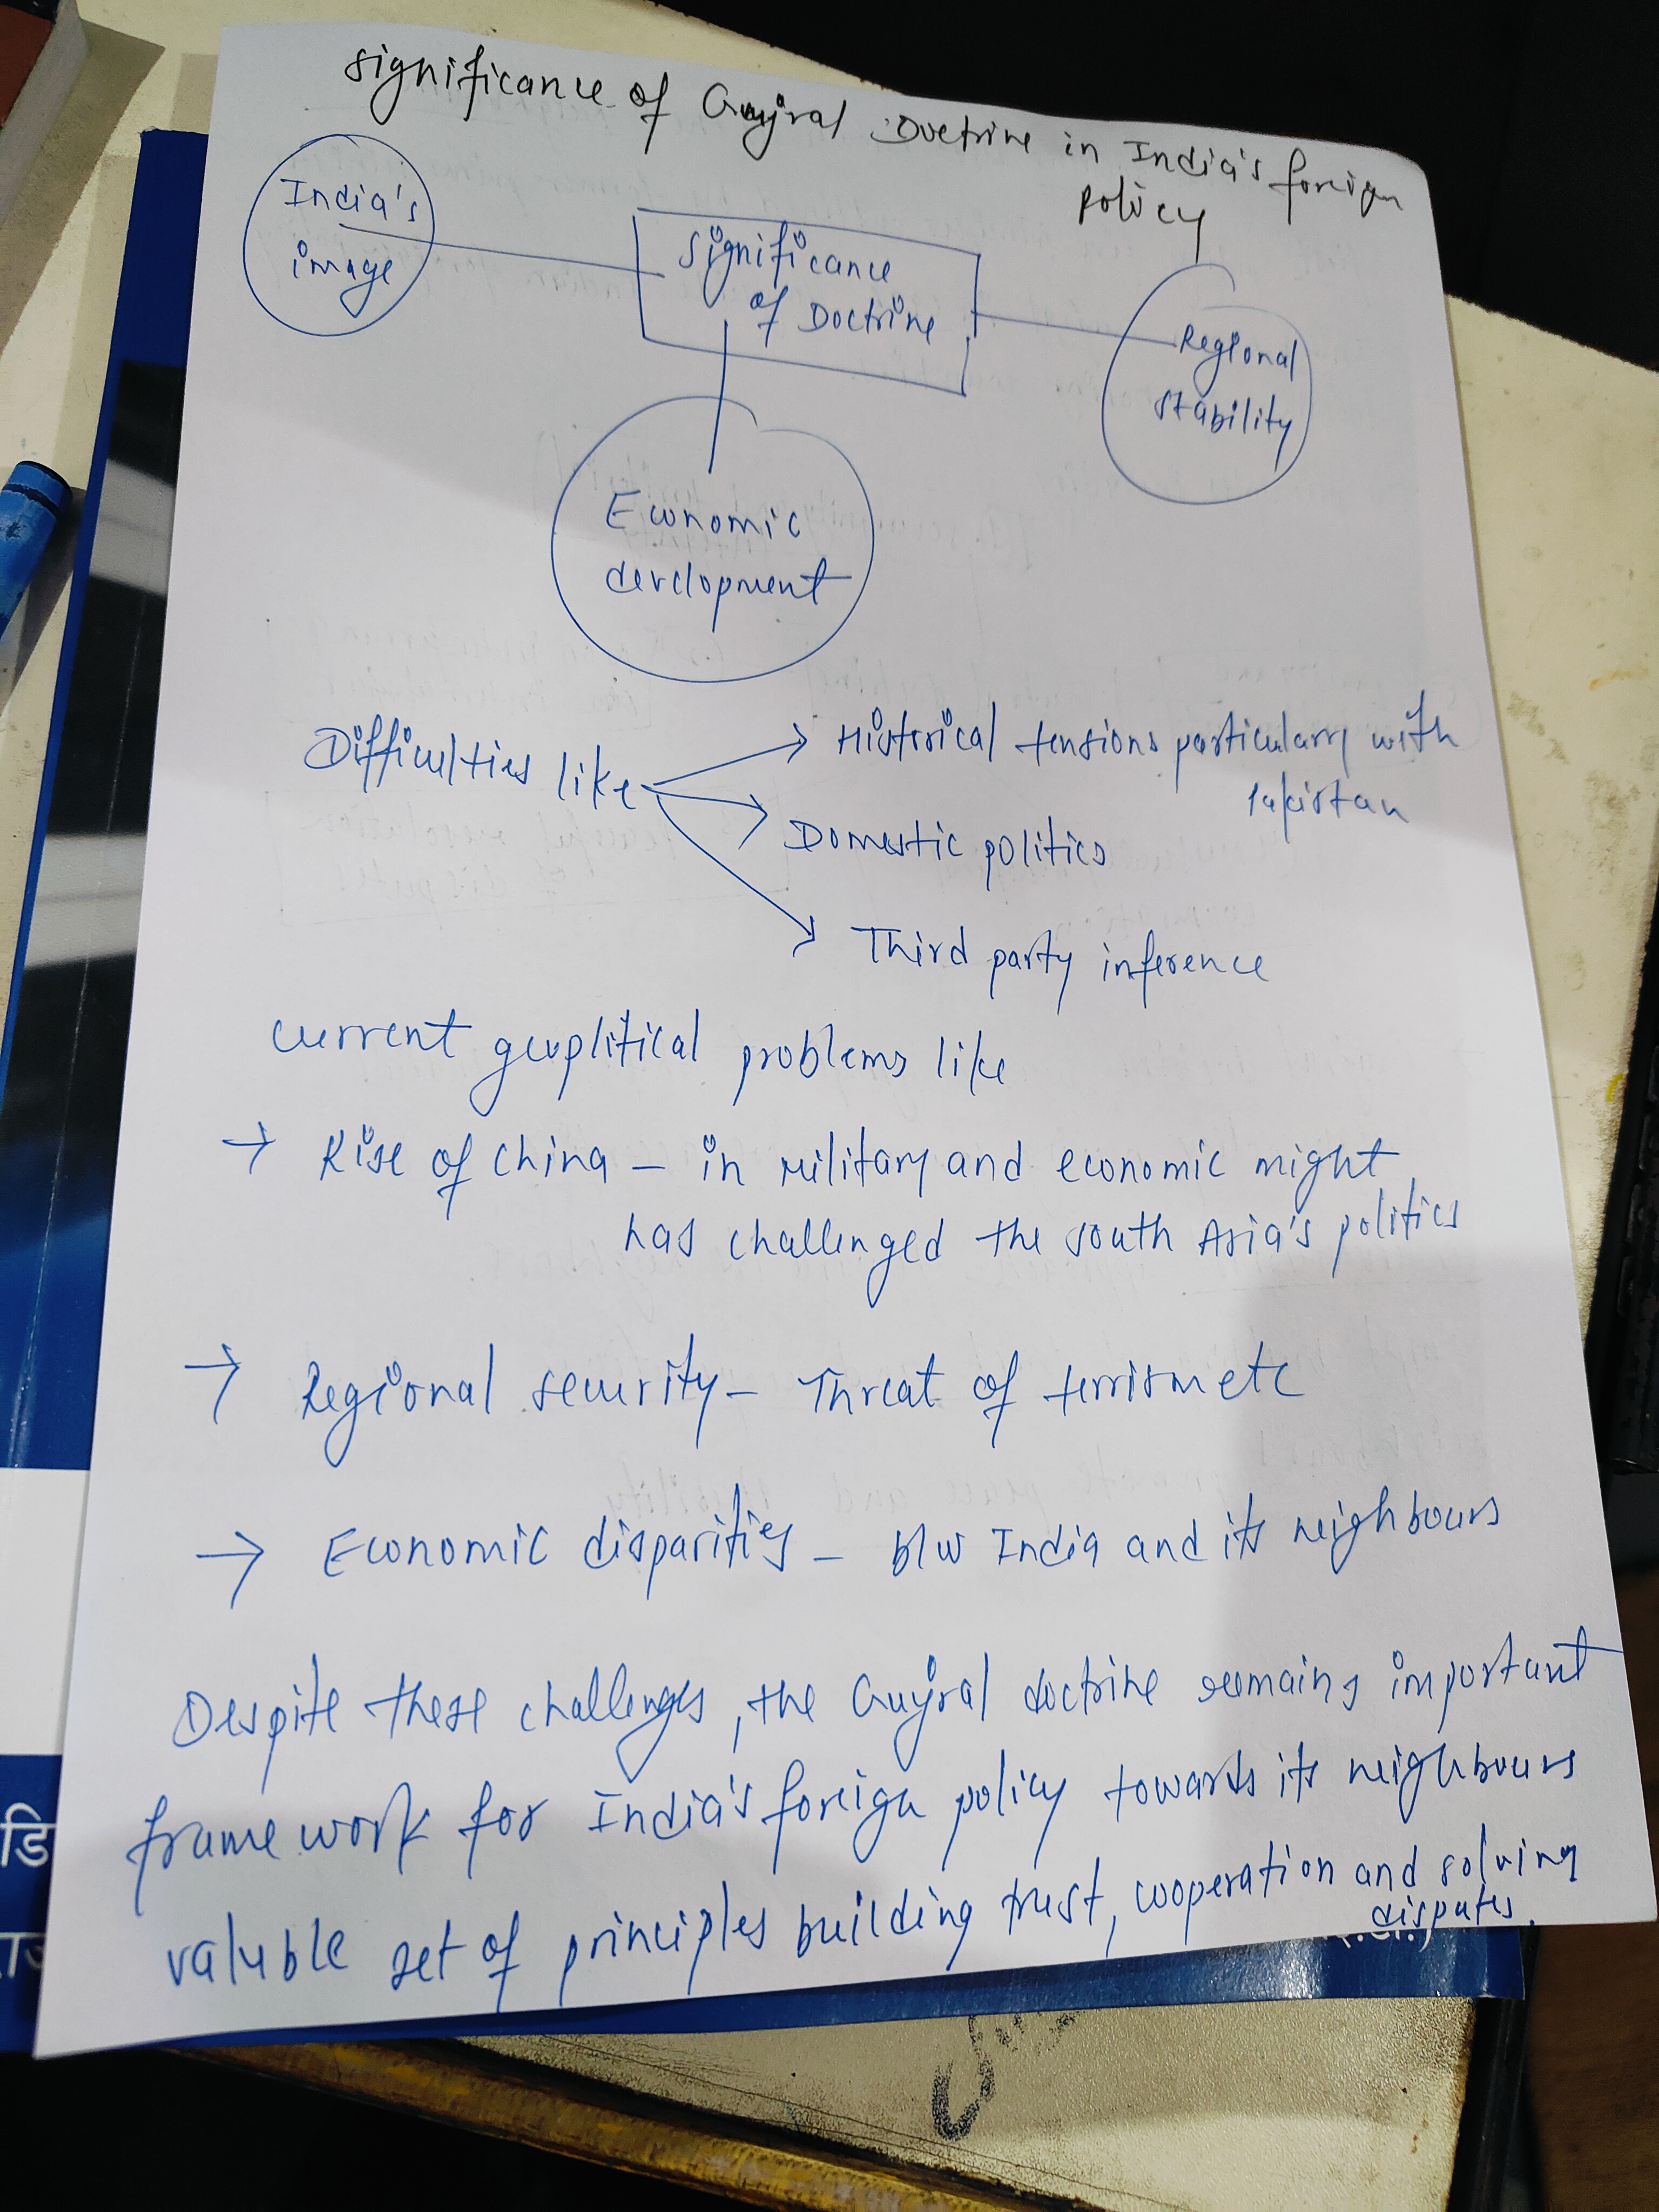 significance of Gujral Doctrine in India's foreign
policy
India's
image
Significance
of Doctrine
Regional
stability
Economic
development
Difficulties like
Historical tensions particularry with
Pakistan
Domestic politics
Third party inference
current geoplitical problems like
→ Rise of China – in military and economic might
has challenged the south Asia's politics
→ Regional security – Threat of terrismetc
→ Economic disparities – b/w India and its neighbours
Despite these challenges, the Gujral doctrine remains important
framework for India's foreign policy towards its neighbours
valuble set of principles building trust, cooperation and solving
disputes.
डि